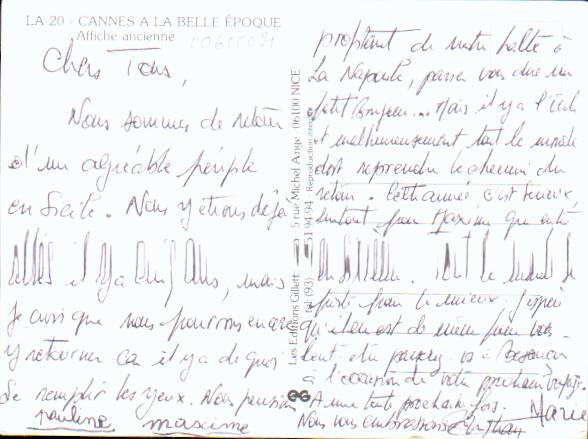 LA 20 - CANNES A LA BELLE ÉPOQUE
Affiche ancienne
Chers Tous,
Nous sommes de retour
d'un agréable périple
en Sicile. Nous y étions déjà
allés il y a cinq ans, mais
je crois que nous pourrons encore
y retourner car il y a de quoi
se remplir les yeux. Nous pensions
pauline maxime
Les Editions Gilletta 5 rue Michel Ange - 06100 NICE
Tél (93) 51 94 94 - Reproduction interdite
profitant de notre halte à
La Napoule, passer vous dire un
petit Bonjour... Mais il y a l'Ecole
et malheureusement tout le monde
doit reprendre le chemin du
retour. Cette année c'est sérieux,
surtout pour Maxim qui entre
en Sixième. Tout le monde se
porte pour le mieux. J'espère
qu'il en est de même pour vous
à l'occasion de votre prochain voyage.
A une toute prochaine fois.
Nous vous embrassons
Marie